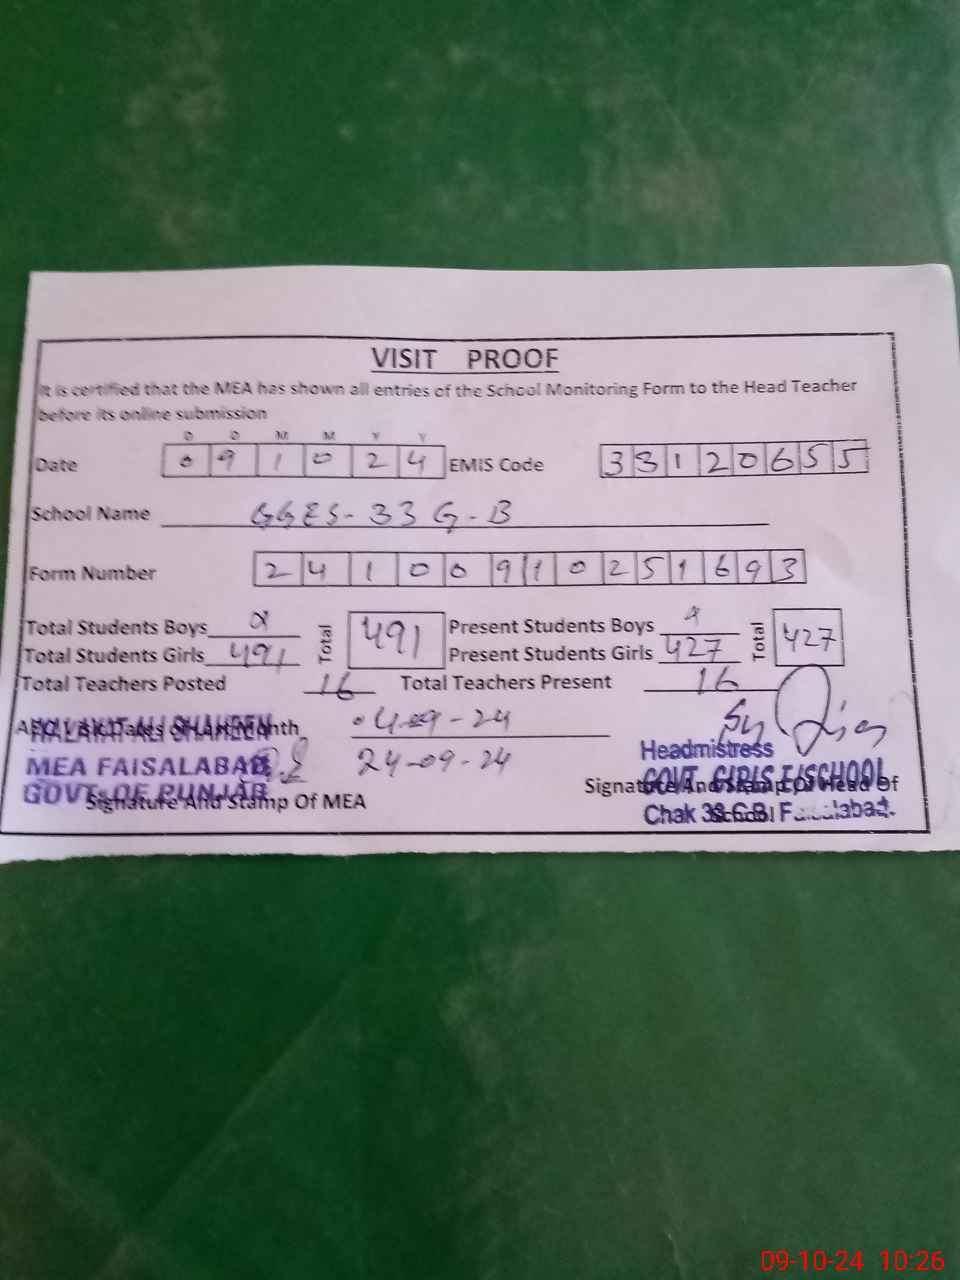 VISIT PROOF
It is certified that the MEA has shown all entries of the School Monitoring Form to the Head Teacher
before its online submission
D D M M Y Y
Date 0 9 1 0 2 4 EMIS Code 3 3 1 2 0 6 5 5
School Name GGES-33 G-B
Form Number 2 4 1 0 0 9 1 0 2 5 1 6 9 3
Total Students Boys Total 491 Present Students Boys Total 427
Total Students Girls 491 Present Students Girls 427
Total Teachers Posted 16 Total Teachers Present 16
04-09-24
24-09-24
MEA FAISALABAD
GOVT. OF PUNJAB
Signature And Stamp Of MEA
Headmistress
Signature And Stamp Of Head Of
School
GOVT. GIRLS E/SCHOOL
Chak 33 G.B. Faisalabad.
09-10-24 10:26